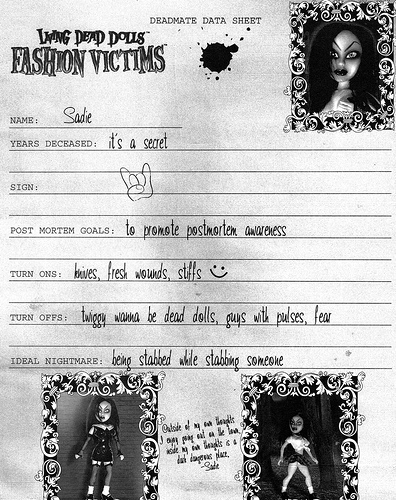 DEADMATE DATA SHEET
LIVING DEAD DOLLS
FASHION VICTIMS
NAME: Sadie
YEARS DECEASED: it's a secret
SIGN:
POST MORTEM GOALS: to promote postmortem awareness
TURN ONS: knives, fresh wounds, stiffs
TURN OFFS: twiggy wanna be dead dolls, guys with pulses, fear
IDEAL NIGHTMARE: being stabbed while stabbing someone
Outside of my own thoughts
I enjoy going out on the town,
inside my own thoughts is a
dark dangerous place,
-Sadie